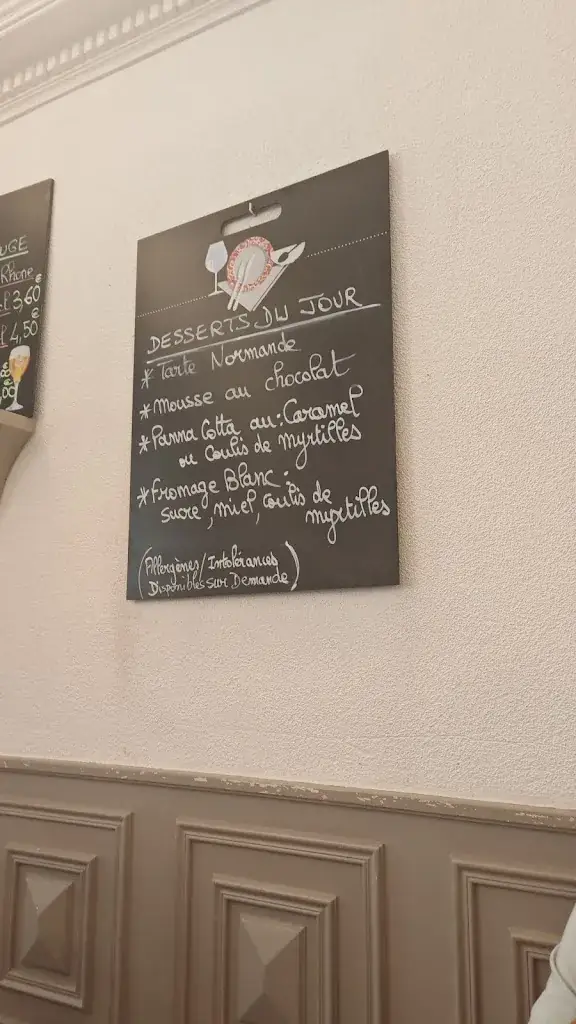 UGE
Rhône
3,60€
4,50€
DESSERTS DU JOUR
* Tarte Normande
* Mousse au chocolat
* Panna Cotta au: Caramel
ou Coulis de Myrtilles
* Fromage Blanc:
sucre, miel, coulis de
myrtilles
(Allergènes/Intolérances
Disponibles sur Demande)